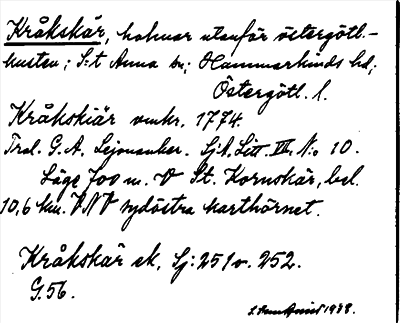 Kråkskär, holmar utanför östergötl.-
kusten; S:t Anna sn; Hammarkinds hd;
Östergötl. l.
Kråkskiär omkr. 1774.
Trol. G. A. Lejonanker. Sjk. Litt. VII. N:o 10.
Läge 700 m. V St. Kornskär, bel.
10,6 km. VNV sydöstra karthörnet.
Kråkskär ek. Sj: 251 v. 252.
G. 56.
1938.